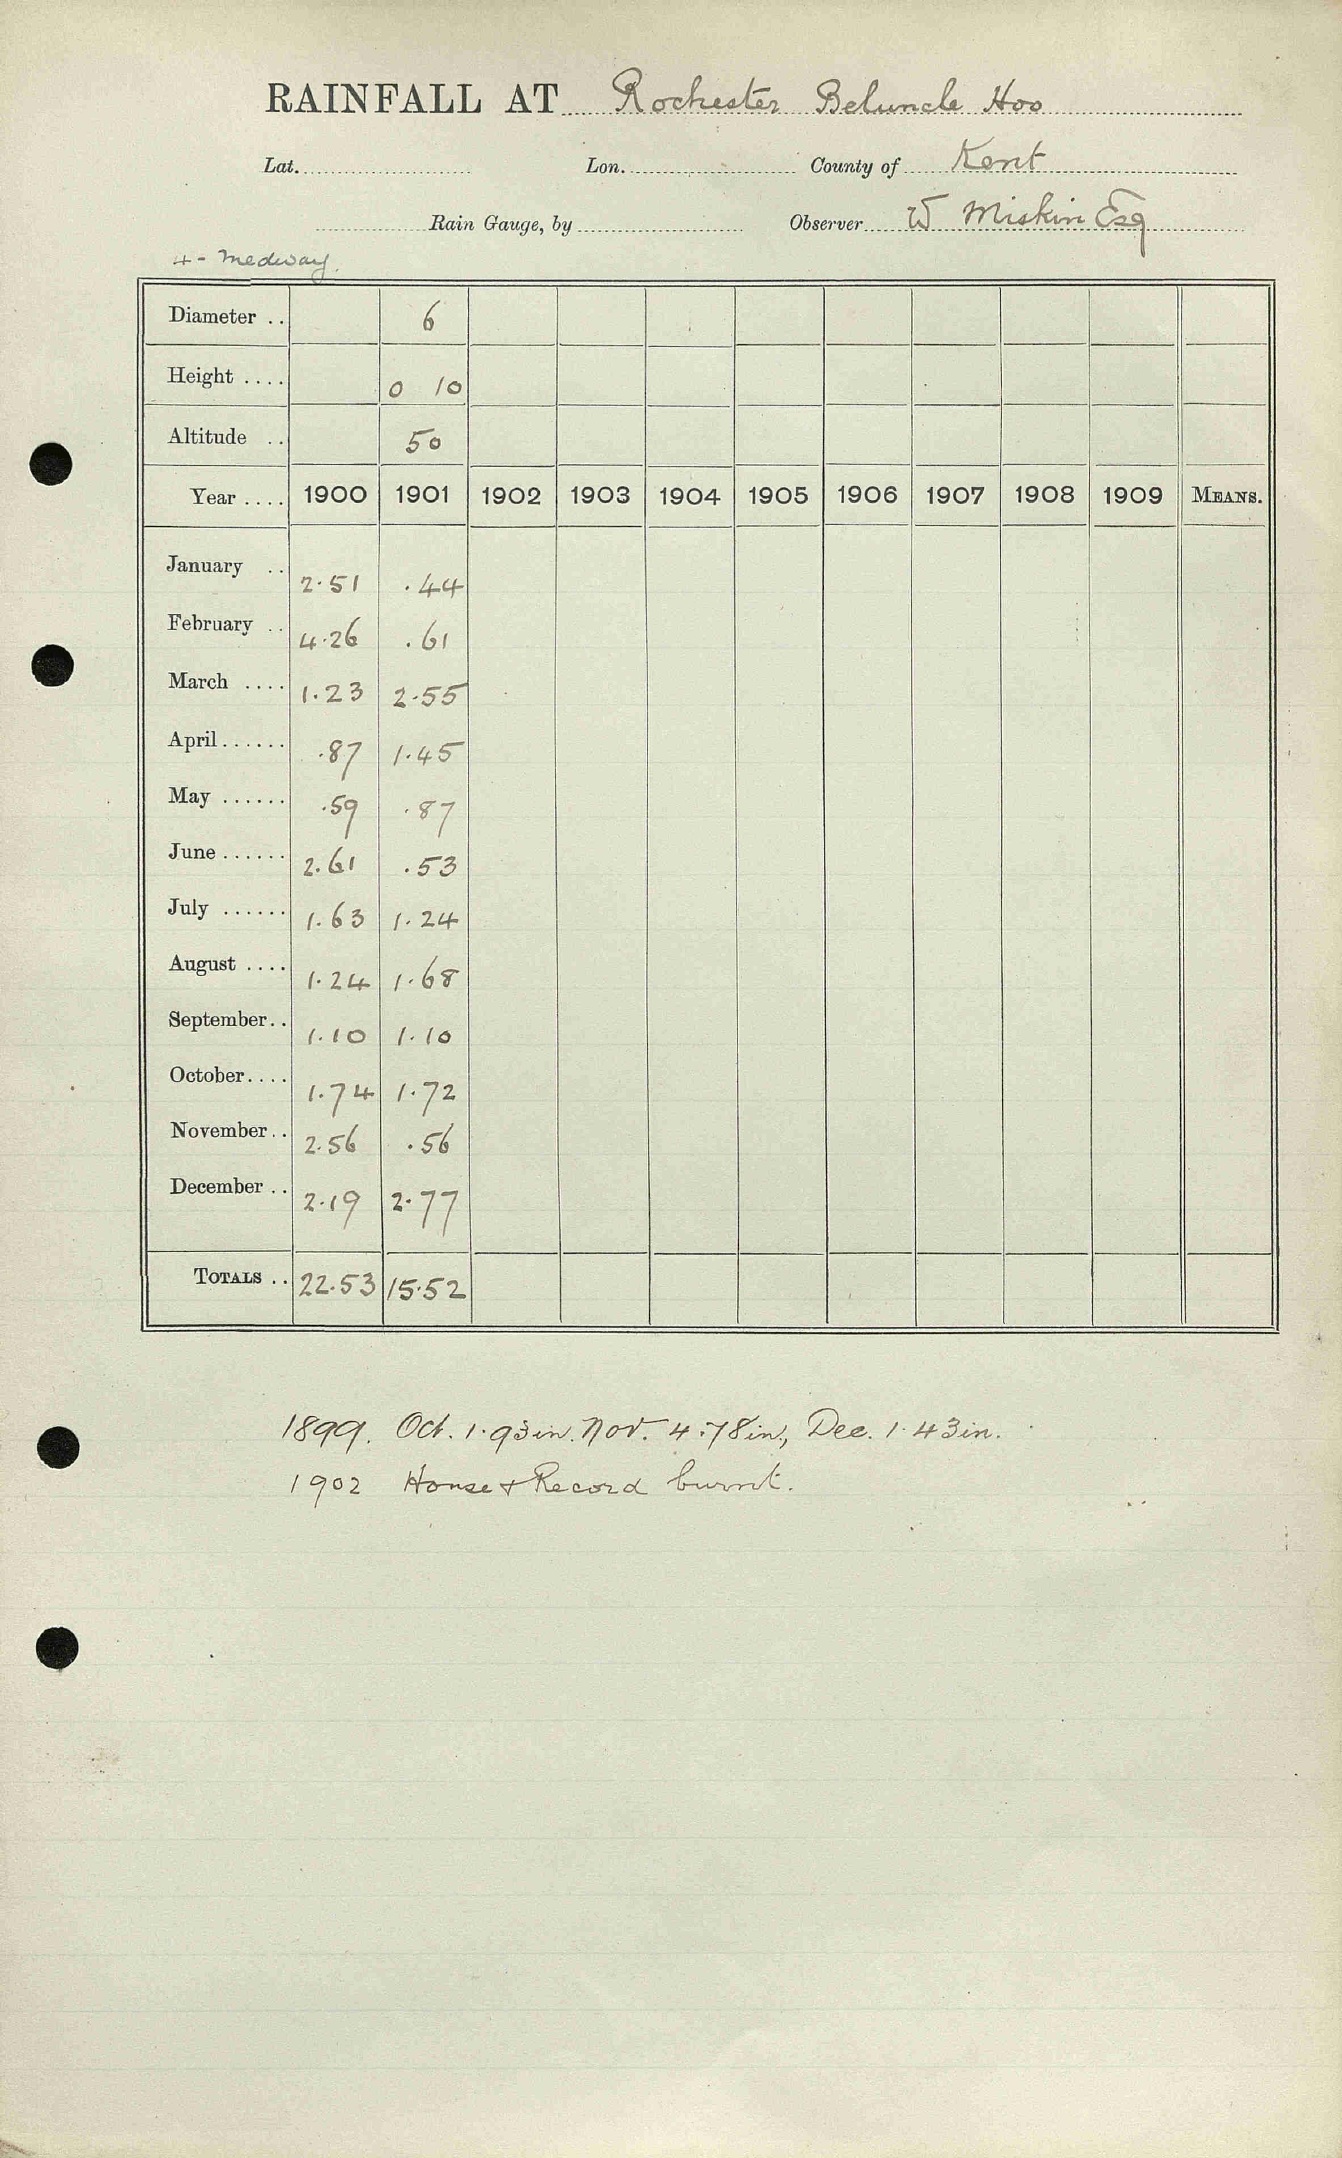 RAINFALL AT Rochester Beluncle Hoo
Lat. Lon. County of Kent
Rain Gauge, by Observer W Miskin Esq
4 - Medway.
Diameter .. 6
Height .... 0 10
Altitude .. 50
Year .... 1900 1901 1902 1903 1904 1905 1906 1907 1908 1909 MEANS.
January .. 2.51 .44
February .. 4.26 .61
March .... 1.23 2.55
April ...... .87 1.45
May ...... .59 .87
June ...... 2.61 .53
July ...... 1.63 1.24
August .... 1.24 1.68
September.. 1.10 1.10
October.... 1.74 1.72
November.. 2.56 .56
December .. 2.19 2.77
TOTALS .. 22.53 15.52
1899. Oct. 1.93in. Nov. 4.78in, Dec. 1.43in.
1902 House & Record burnt.